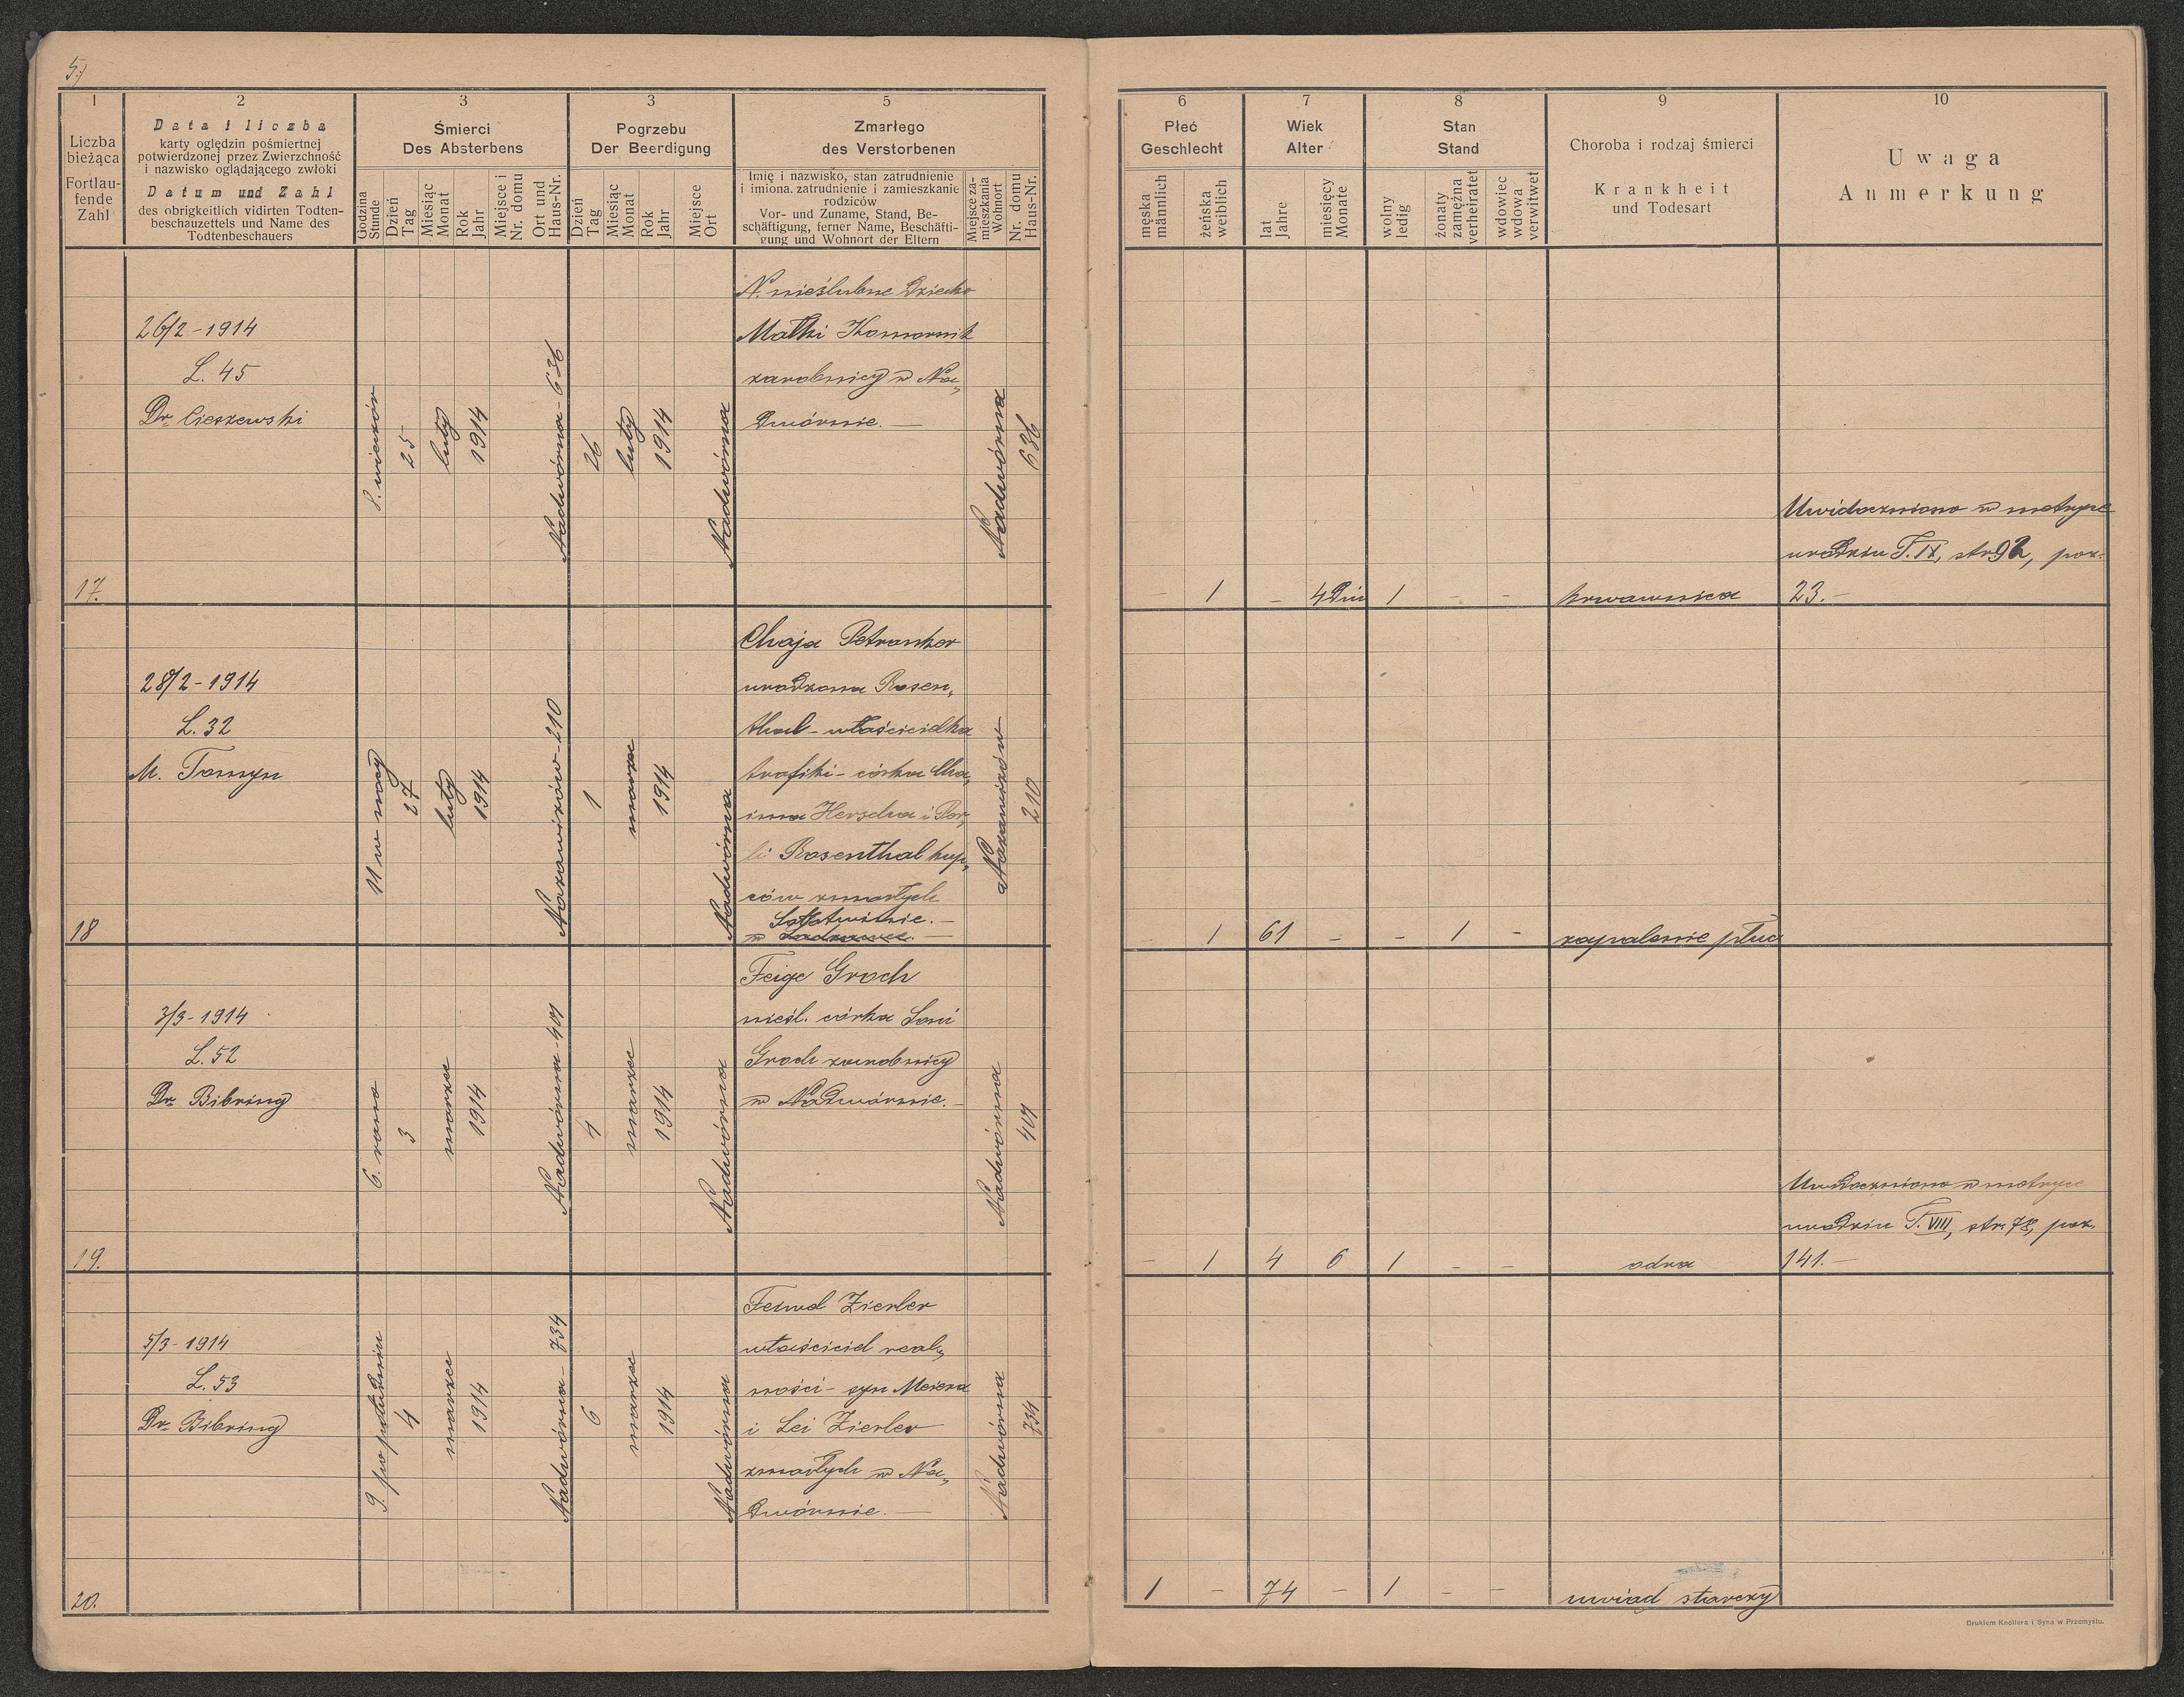 5.)
1
2
3
3
5
6
7
8
9
10
Liczba
bieżąca
Fortlau-
fende
Zahl
Data i liczba
karty oględzin pośmiertnej
potwierdzonej przez Zwierzchność
i nazwisko oglądającego zwłoki
Datum und Zahl
des obrigkeitlich vidirten Todten-
beschauzettels und Name des
Todtenbeschauers
Śmierci
Des Absterbens
Godzina
Stunde
Dzień
Tag
Miesiąc
Monat
Rok
Jahr
Miejsce i
Nr. domu
Ort und
Haus-Nr.
Pogrzebu
Der Beerdigung
Dzień
Tag
Miesiąc
Monat
Rok
Jahr
Miejsce
Ort
Zmarłego
des Verstorbenen
Imię i nazwisko, stan zatrudnienie
i imiona. zatrudnienie i zamieszkanie
rodziców
Vor- und Zuname, Stand, Be-
schäftigung, ferner Name, Beschäfti-
gung und Wohnort der Eltern
Miejsce za-
mieszkania
Wohnort
Nr. domu
Haus-Nr.
Płeć
Geschlecht
męska
männlich
żeńska
weiblich
Wiek
Alter
lat
Jahre
miesięcy
Monate
Stan
Stand
wolny
ledig
żonaty
zamężna
verheiratet
wdowiec
wdowa
verwitwet
Choroba i rodzaj śmierci
Krankheit
und Todesart
Uwaga
Anmerkung
17.
26/2 - 1914
L. 45
Dr. Cieszewski
8. wieczór
25
luty
1914
Nadwórna - 636
26
luty
1914
Nadwórna
N. nieślubne dziecko
Matki Komornik
zarobnicy w Na„
dwórnie. —
Nadwórna
636
- 1 - 4 Dni 1 - -
krwawnica
Uwidoczniono w metryce
urodzin T. IX, str 92, poz.
23. —
18
28/2 - 1914
L. 32
M. Tomyn
11 w nocy
27
luty
1914
Nazawizów - 210
1
marzec
1914
Nadwórna
Chaja Petranker
urodzona Rosen„
thal - właścicielka
trafiki - córka Cha„
ima Herscha i Per„
li Rosenthal kup„
ców zmarłych
Sołotwinie. —
w
Nazawizów
210
- 1 61 - - 1 -
zapalenie płuc
19.
3/3 - 1914
L. 52
Dr. Bibring
6. rano
3
marzec
1914
Nadwórna - 401
4
marzec
1914
Nadwórna
Feige Groch
nieśl. córka Soni
Groch zarobnicy
w Nadwórnie. —
Nadwórna
401
- 1 4 6 1 - -
odra
Uwidoczniono w metryce
urodzin T. VIII, str. 78, poz.
141. —
20.
5/3 - 1914
L. 53
Dr. Bibring
9. po południu
4
marzec
1914
Nadwórna - 734
6
marzec
1914
Nadwórna
Zierler
właściciel real„
ności - syn Meiera
i Lei Zierler
zmarłych w Na„
dwórnie. —
Nadwórna
734
1 - 74 - 1 - -
uwiąd starczy
Drukiem Knollera i Syna w Przemyślu.